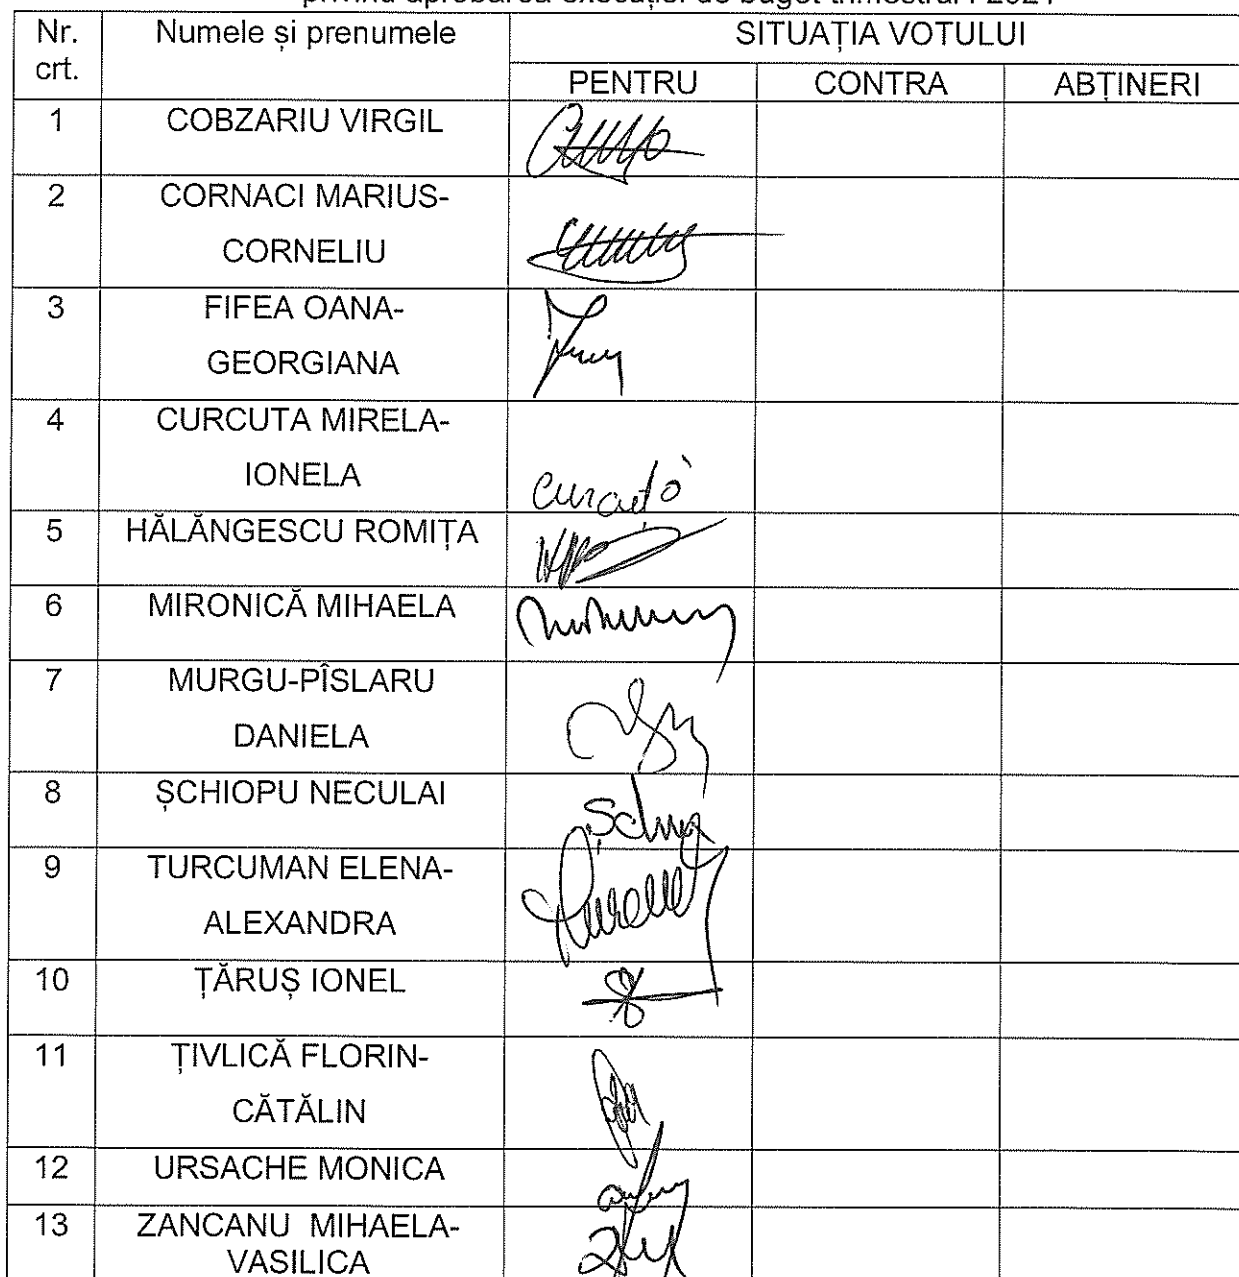 privind aprobarea execuției de buget trimestrul I 2021
Nr. crt. Numele și prenumele SITUAȚIA VOTULUI
PENTRU CONTRA ABȚINERI
1 COBZARIU VIRGIL
2 CORNACI MARIUS-
CORNELIU
3 FIFEA OANA-
GEORGIANA
4 CURCUTA MIRELA-
IONELA
5 HĂLĂNGESCU ROMIȚA
6 MIRONICĂ MIHAELA
7 MURGU-PÎSLARU
DANIELA
8 ȘCHIOPU NECULAI
9 TURCUMAN ELENA-
ALEXANDRA
10 ȚĂRUȘ IONEL
11 ȚIVLICĂ FLORIN-
CĂTĂLIN
12 URSACHE MONICA
13 ZANCANU MIHAELA-
VASILICA